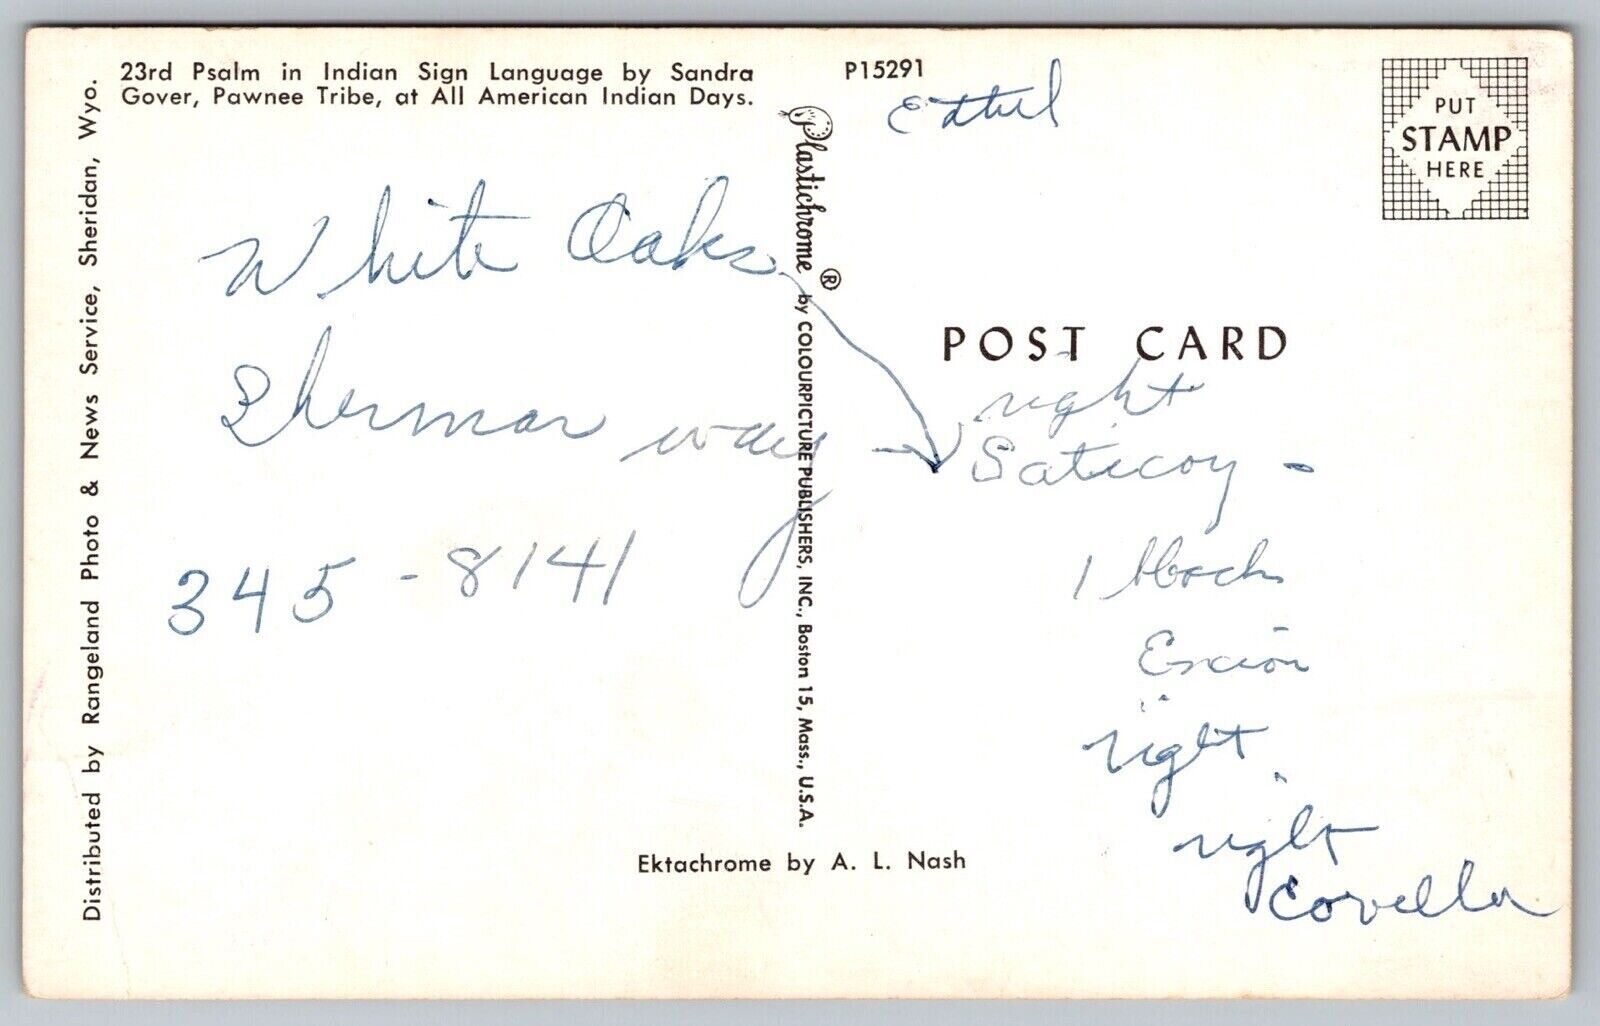 23rd Psalm in Indian Sign Language by Sandra
Gover, Pawnee Tribe, at All American Indian Days.
P15291
PUT
STAMP
HERE
Distributed by Rangeland Photo & News Service, Sheridan, Wyo.
Plastichrome® by COLOURPICTURE PUBLISHERS, INC., Boston 15, Mass., U.S.A.
POST CARD
White Oaks
Sherman way
345-8141
right
Saticoy -
1
right
right
Ektachrome by A. L. Nash